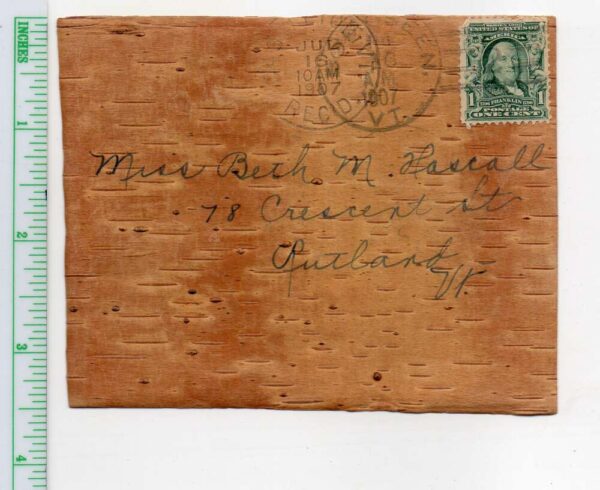 INCHES
1
2
3
4
JUL
16
10 AM
1907
REC'D
1907
VT.
SERIES 1902
UNITED STATES OF
AMERICA
1 1
FRANKLIN
POSTAGE
ONE CENT
Miss Beth M. Hascall
78 Crescent St
Rutland
Vt.